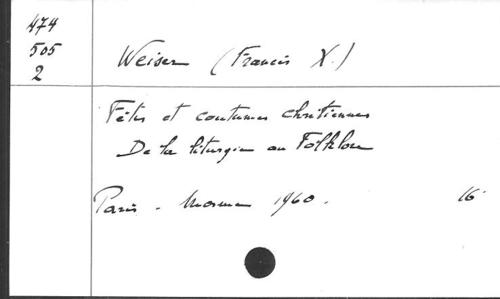 474
505
2
Weiser (Francis X.)
Fêtes et coutumes chrétiennes
De la liturgie au Folklore
Paris - Mame 1960. 16°